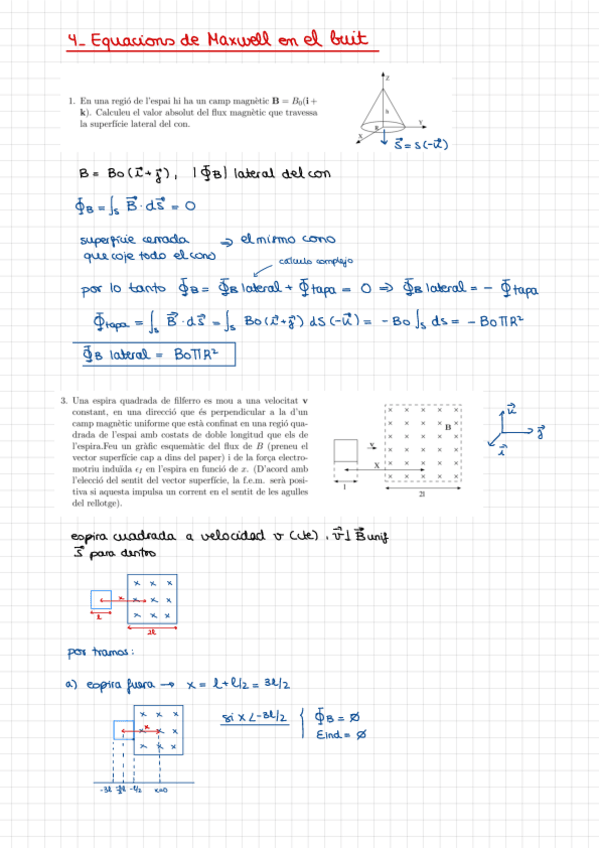 4- Equacions de Maxwell en el buit
1. En una regió de l'espai hi ha un camp magnètic B = B₀(i +
k). Calculeu el valor absolut del flux magnètic que travessa
la superfície lateral del con.
Z
h
R
Y
X
S⃗ = S(-k⃗)
B = Bo (i⃗ + j⃗), |ΦB| lateral del con
ΦB = ∫s B⃗ · dS⃗ = 0
superficie cerrada ⇒ el mismo cono
que coje todo el cono
calculo complejo
por lo tanto ΦB = ΦB lateral + Φtapa = 0 ⇒ ΦB lateral = - Φtapa
Φtapa = ∫s B⃗ · dS⃗ = ∫s Bo (i⃗ + j⃗) dS (-k⃗) = - Bo ∫s ds = - BoΠR²
ΦB lateral = BoΠR²
3. Una espira quadrada de filferro es mou a una velocitat v
constant, en una direcció que és perpendicular a la d'un
camp magnètic uniforme que està confinat en una regió qua-
drada de l'espai amb costats de doble longitud que els de
l'espira.Feu un gràfic esquemàtic del flux de B (preneu el
vector superfície cap a dins del paper) i de la força electro-
motriu induïda ϵI en l'espira en funció de x. (D'acord amb
l'elecció del sentit del vector superfície, la f.e.m. serà posi-
tiva si aquesta impulsa un corrent en el sentit de les agulles
del rellotge).
B
v
X
l
2l
k⃗
j⃗
i⃗
espira cuadrada a velocidad v (cte), v⃗ ⊥ B⃗ unif
S⃗ para dentro
x
l
2l
por tramos:
a) espira fuera → x = l + l/2 = 3l/2
si x < -3l/2 { ΦB = ∅
Eind = ∅
x
-l/2 x=0